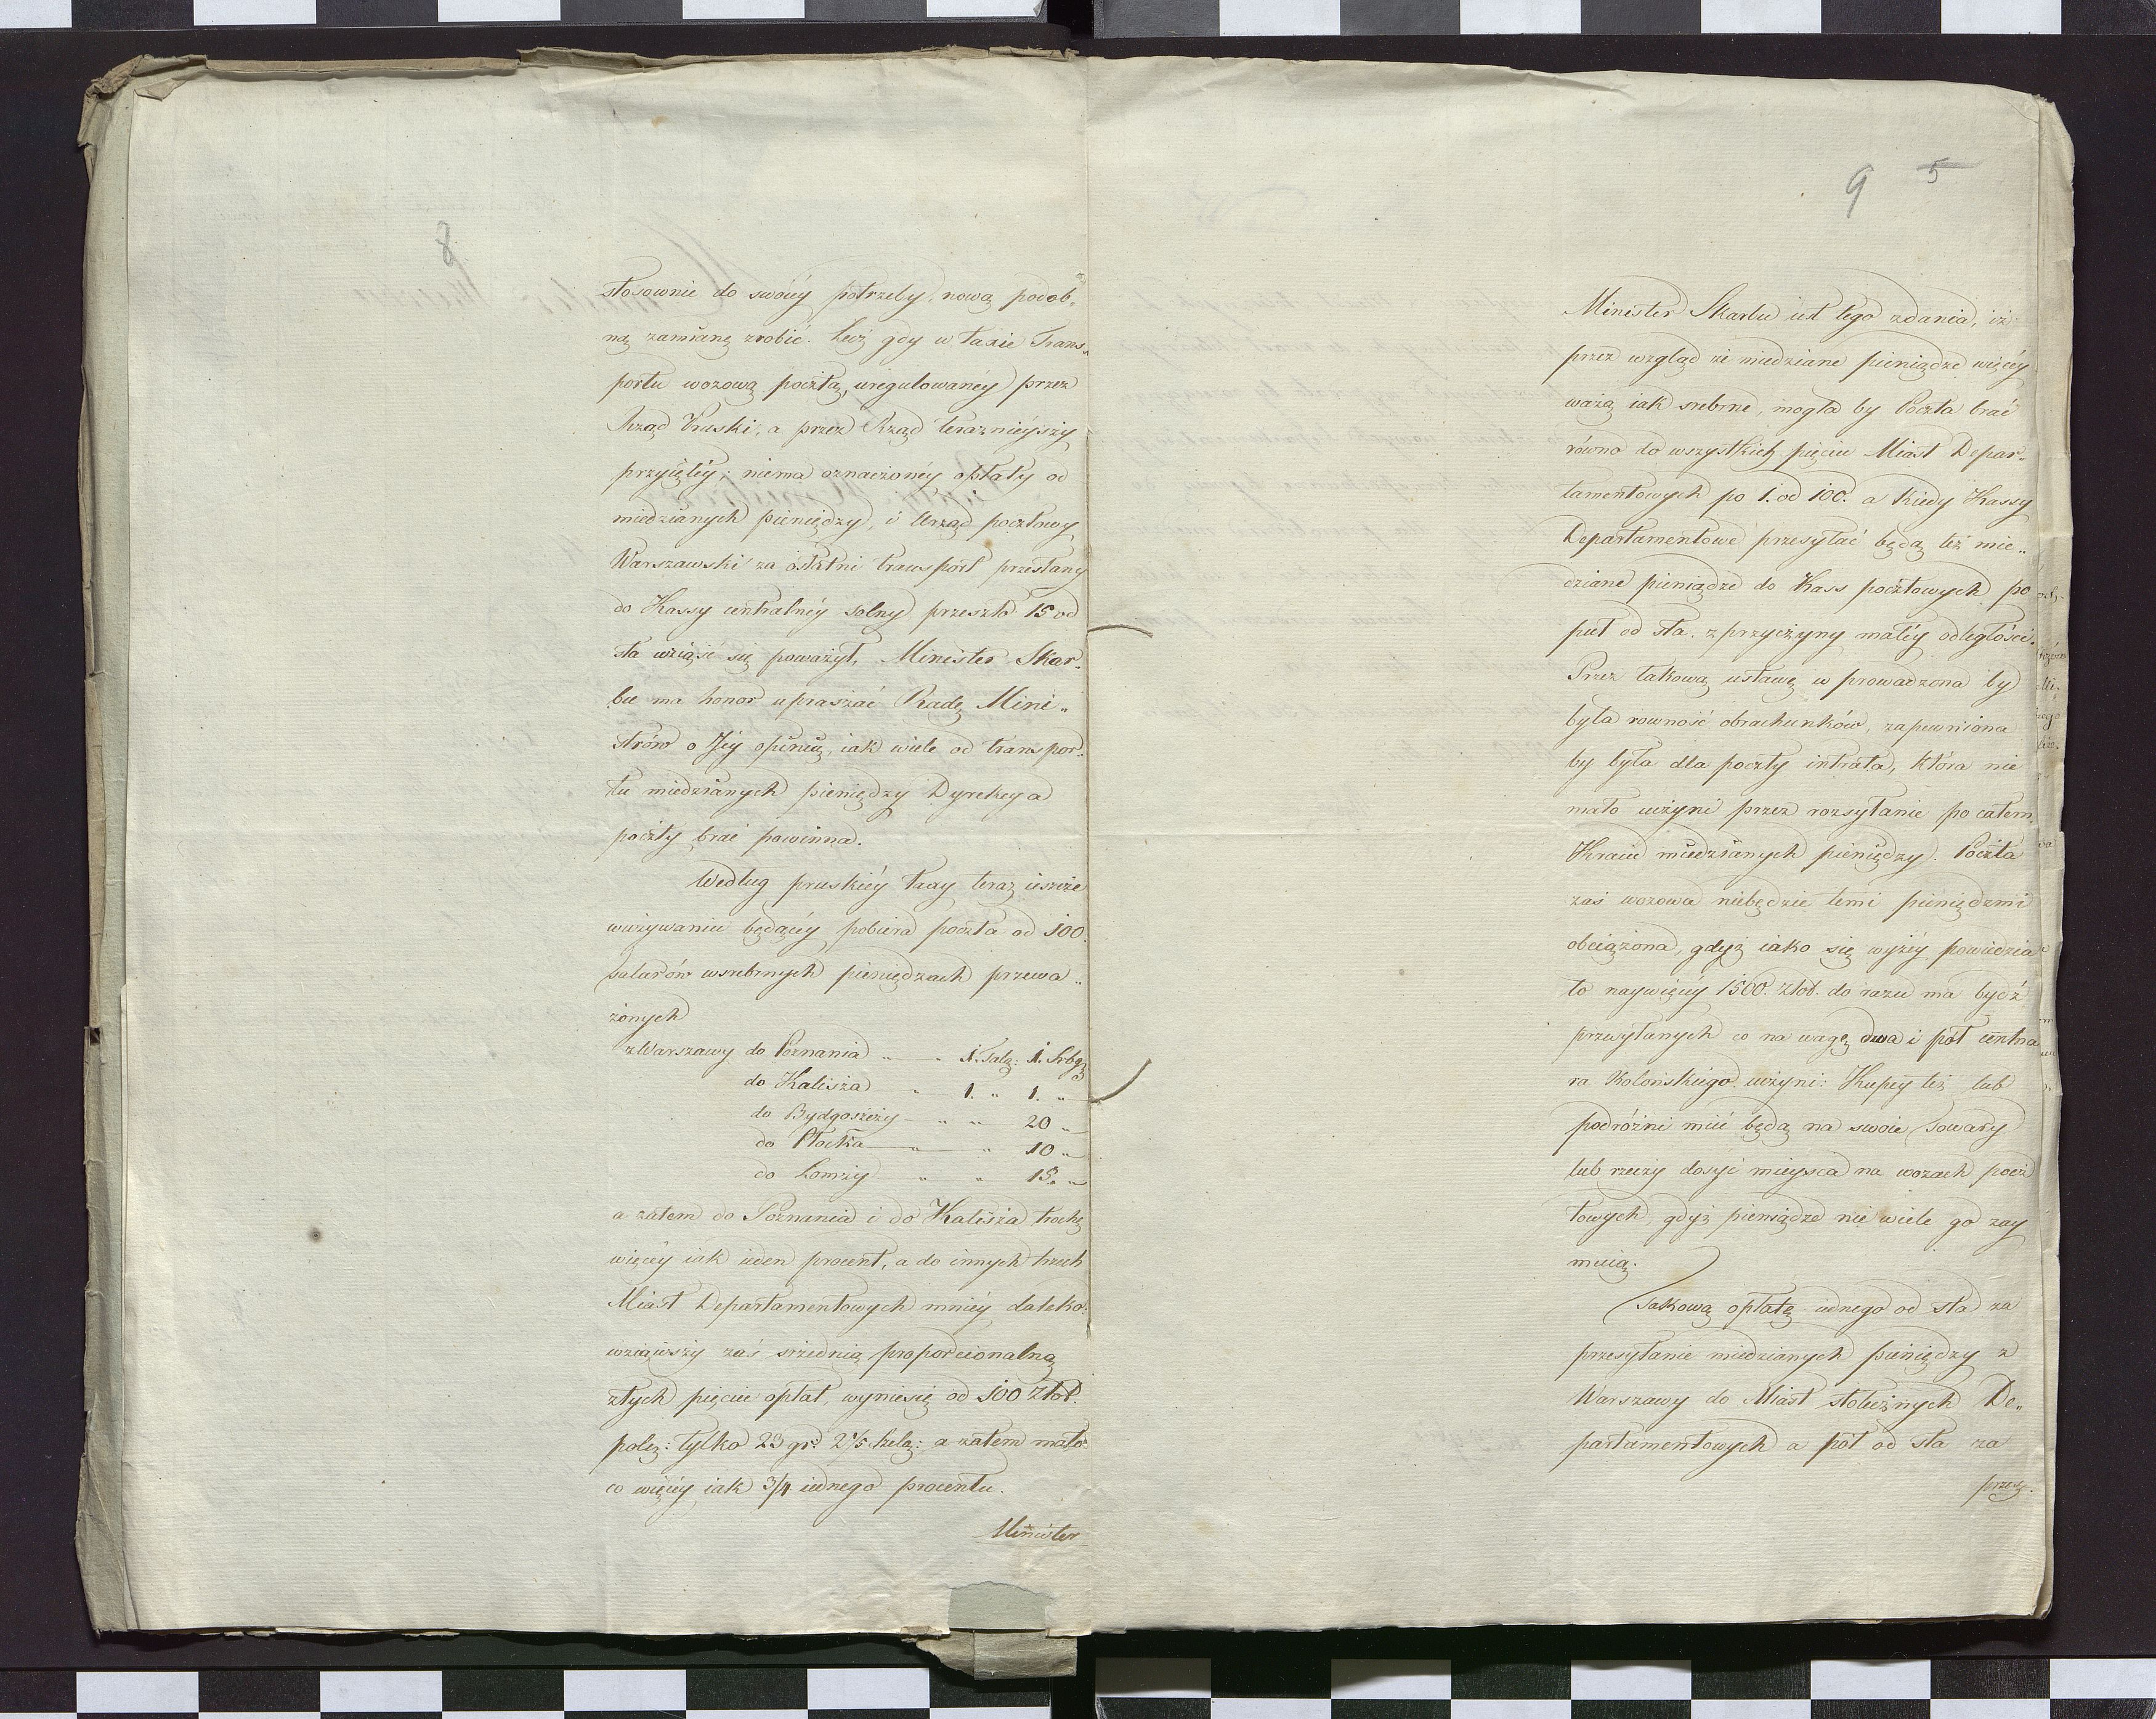 8
stosownie do swoiéy potrzeby, nową podob„
ną zamianę zrobić. Lecz gdy w taxie Trans„
portu wozową pocztą, uregulowanéy przez
Rząd Pruski, a przez Rząd teraznieyszy
przyiętéy, niema oznaczonéy opłaty od
miedzianych pieniędzy, i Urząd pocztowy
Warszawski za ostatni transport przesłany
do Kassy centralnéy solney przeszło 15 od
sta wziąść się poważył, Minister Skar„
bu ma honor upraszać Radę Mini„
strów o Jéy opinią, iak wiele od transpor„
tu miedzianych pieniędzy Dyrekcya
poczty brać powinna.
Według pruskiéy Taxy teraz ieszcze
wużywaniu będącéy pobiera poczta od 100.
talarów wsrebrnych pieniędzach przewa„
żonych
z Warszawy do Poznania „ „ 1. Talą: 1. Srbgz
do Kalisza „ 1. „ 1. „
do Bydgoszczy „ „ 20 „
do Płocka „ „ 10 „
do Łomży „ „ 15. „
a zatem do Poznania i do Kalisza trochę
więcéy iak ieden procent, a do innych trzech
Miast Departamentowych mniéy daleko.
wziąwszy zaś srzednią proporcionalną
ztych pięciu opłat, wyniesię od 100 Złot.
polsz: tylko 23 gr: 2 2/5 szelą: a zatem mało
co więcéy iak 3/4 iednego procentu.
Minister
9 5
Minister Skarbu iest tego zdania, iż
przez wzgląd że miedziane pieniądze więcéy
ważą iak srebrne, mogła by Poczta brać
równo do wszystkich pięciu Miast Depar„
tamentowych po 1. od 100. a kiedy Kassy
Departamentowe przesyłać będą też mie„
dziane pieniądze do Kass pocztowych po
puł od sta. z przyczyny małéy odległości.
Przez takową ustawę w prowadzona by
była rowność obrachunków, zapewniona
by była dla poczty intrata, która nie
mało uczyni przez rozsyłanie po całem
Kraiu miedzianych pieniędzy. Poczta
zaś wozowa niebędzie temi pieniędzmi
obciążona, gdyż iako się wyżéy powiedzia
ło naywięcéy 1500. złot. do razu ma bydź
przesyłanych co na wagę dwa i pół centna
ra Kolońskiego uczyni: Kupcy też lub
podróżni mieć będą na swoie Towary
lub rzeczy dosyć mieysca na wozach pocz
towych, gdyż pieniądze nie wiele go zay
muią.
Takową opłatę iednego od sta za
przesyłanie miedzianych pieniędzy z
Warszawy do Miast stołecznych De„
partamentowych a pół od sta za
przes.